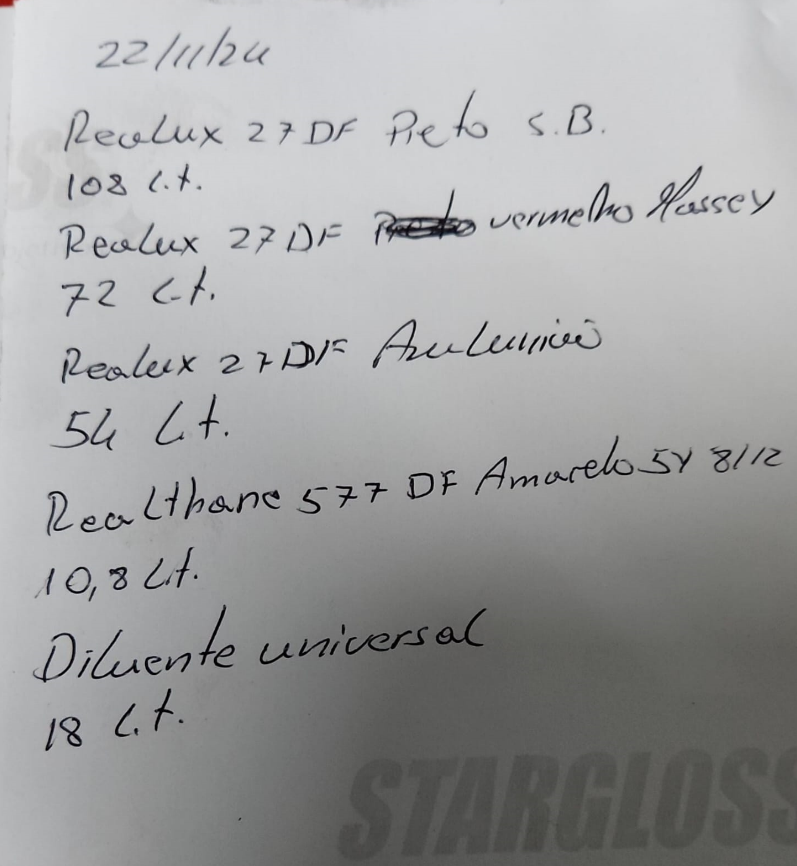 22/11/24
Realux 27 DF Preto S.B.
108 Lt.
Realux 27 DF vermelho Massey
72 Lt.
Realux 27 DF
54 Lt.
Realthane 577 DF Amarelo 5Y 8/12
10,8 Lt.
Diluente universal
18 Lt.
STARGLOSS